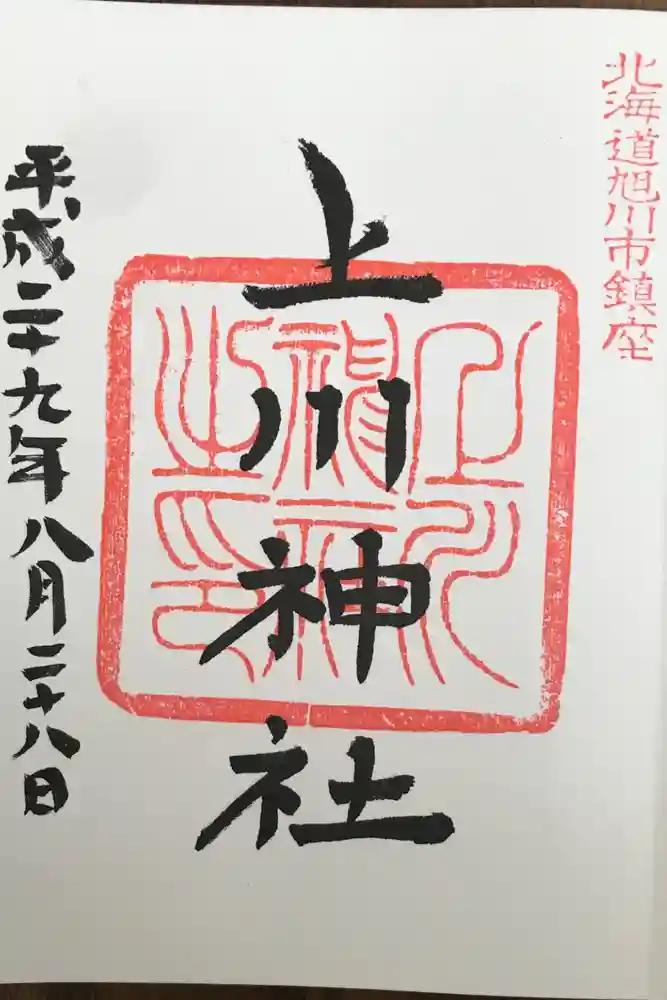 北海道旭川市鎮座
上川神社
上川神社之印
平成二十九年八月二十八日